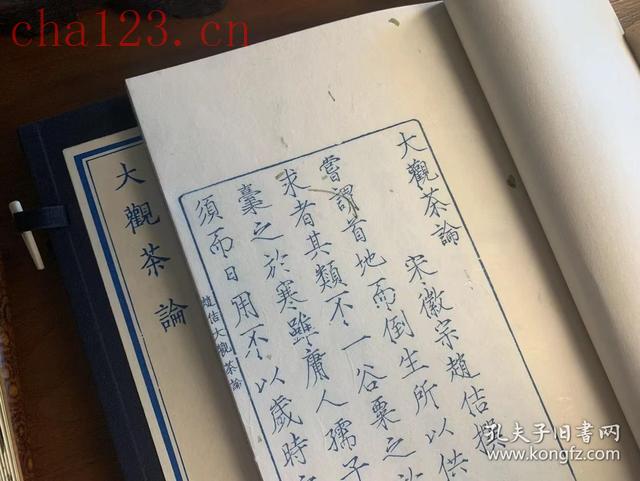 cha123.cn
大觀茶論
宋徽宗趙佶撰
嘗謂首地而倒生所以供
求者其類不一谷粟之於
臺之於寒雖庸人孺子
須而日用不以歲時
趙佶大觀茶論
大觀茶論
孔夫子旧書网
www.kongfz.com